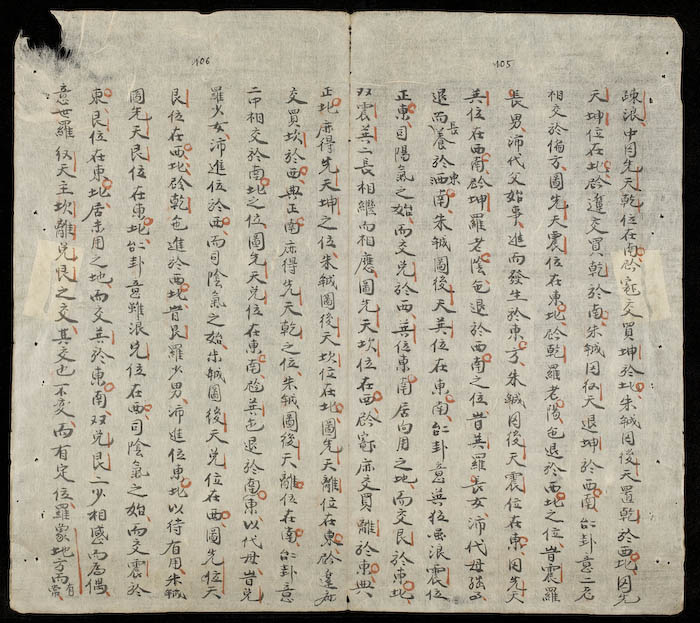 105
疎浪中圖先天乾位在南交買坤於北朱圖後天置乾於西北圖先
天坤位在北違交買乾於南朱圖後天退坤於西南卦意二老
相交於偏方圖先天震位在東北乾羅老陽退於西北之位昔震羅
長男沛代父始事進而發生於東方朱圖後天震位在東圖先天
巽位在西南坤羅老陰退於西南之位昔巽羅長女沛代母
退而長養於東南朱圖後天巽位在東南卦意巽浪震位
正東司陽氣之始而交兌於西巽位東南居向用之地而交艮於東北
双震巽二長相繼而相應圖先天坎位在西亦交買離於東典
106
正北亦得先天坤之位朱圖後天坎位在北圖先天離位在東違亦
交買坎於西典正南亦得先天乾之位朱圖後天離位在南卦意
二中相交於南北之位圖先天兌位在東南巽退於東南以代母昔兌
羅少女沛進位於西而司陰氣之始朱圖後天兌位在西圖先天
艮位在西北乾進於西北昔艮羅少男沛進位東北以待有用朱
圖先天艮位在東北卦意雖浪兌位在西司陰氣之始而交震於
東艮位在東北居未用之地而交巽於東南双兌艮二少相感而為偶
意世羅後天主坎離兌艮之交其交也不変而有定位羅蒙地方而有常